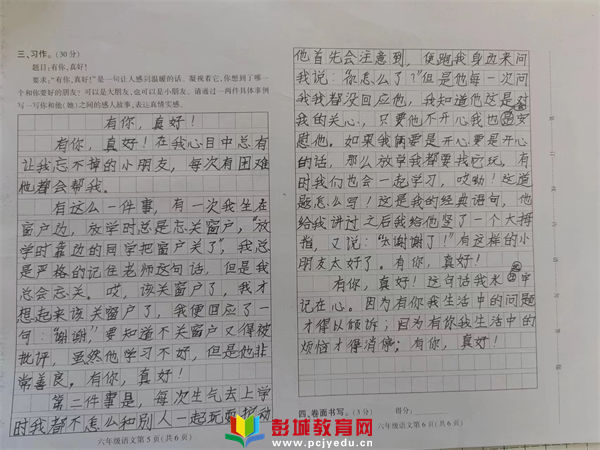 三、习作。(30分)
题目:有你,真好!
要求:“有你,真好!”是一句让人感到温暖的话。凝视着它,你想到了哪一
个和你要好的朋友?可以是大朋友,也可以是小朋友。请通过一两件具体事例
写一写你和他(她)之间的感人故事,表达真情实感。
有你,真好!
有你,真好!在我心目中总有
让我忘不掉的小朋友,每次有困难
他都会帮我。
有这么一件事,有一次我坐在
窗户边,放学时总是忘关窗户,“放
学时靠边的同学把窗户关了,”我总
是严格的记住老师这句话,但是我
总会忘关。哎,该关窗户了,我才
想起来该关窗户了,我便回应了一
句:“谢谢”,要知道不关窗户又得被
批评,虽然他学习不好,但是他非
常善良。有你,真好!
第二件事是,每次生气去上学
时我都不怎么和别人一起玩而他动
六年级语文第5页(共6页)
他首先会注意到,便跑我身边来问
我说:“你怎么了?”但是他每一次问
我我都没回应他,我知道他这是对
我的关心,只要他不开心我也会安
慰他。如果我俩要是开心要是开心
的话,那么放学我都要找它玩,有
时我们也会一起学习,哎呦!这道
题怎么写!这是我的经典语句,他
给我讲过之后我给他竖了一个大拇
指,又说:“太谢谢了!”有这样的小
朋友太好了。有你,真好!
有你,真好!这句话我永牢
记在心。因为有你我生活中的问题
才得以倾诉;因为有你我生活中的
烦恼才得消停;有你,真好!
四、卷面书写。(3分) 得分:
六年级语文第6页(共6页)
彭城教育网
www.pcjyedu.cn